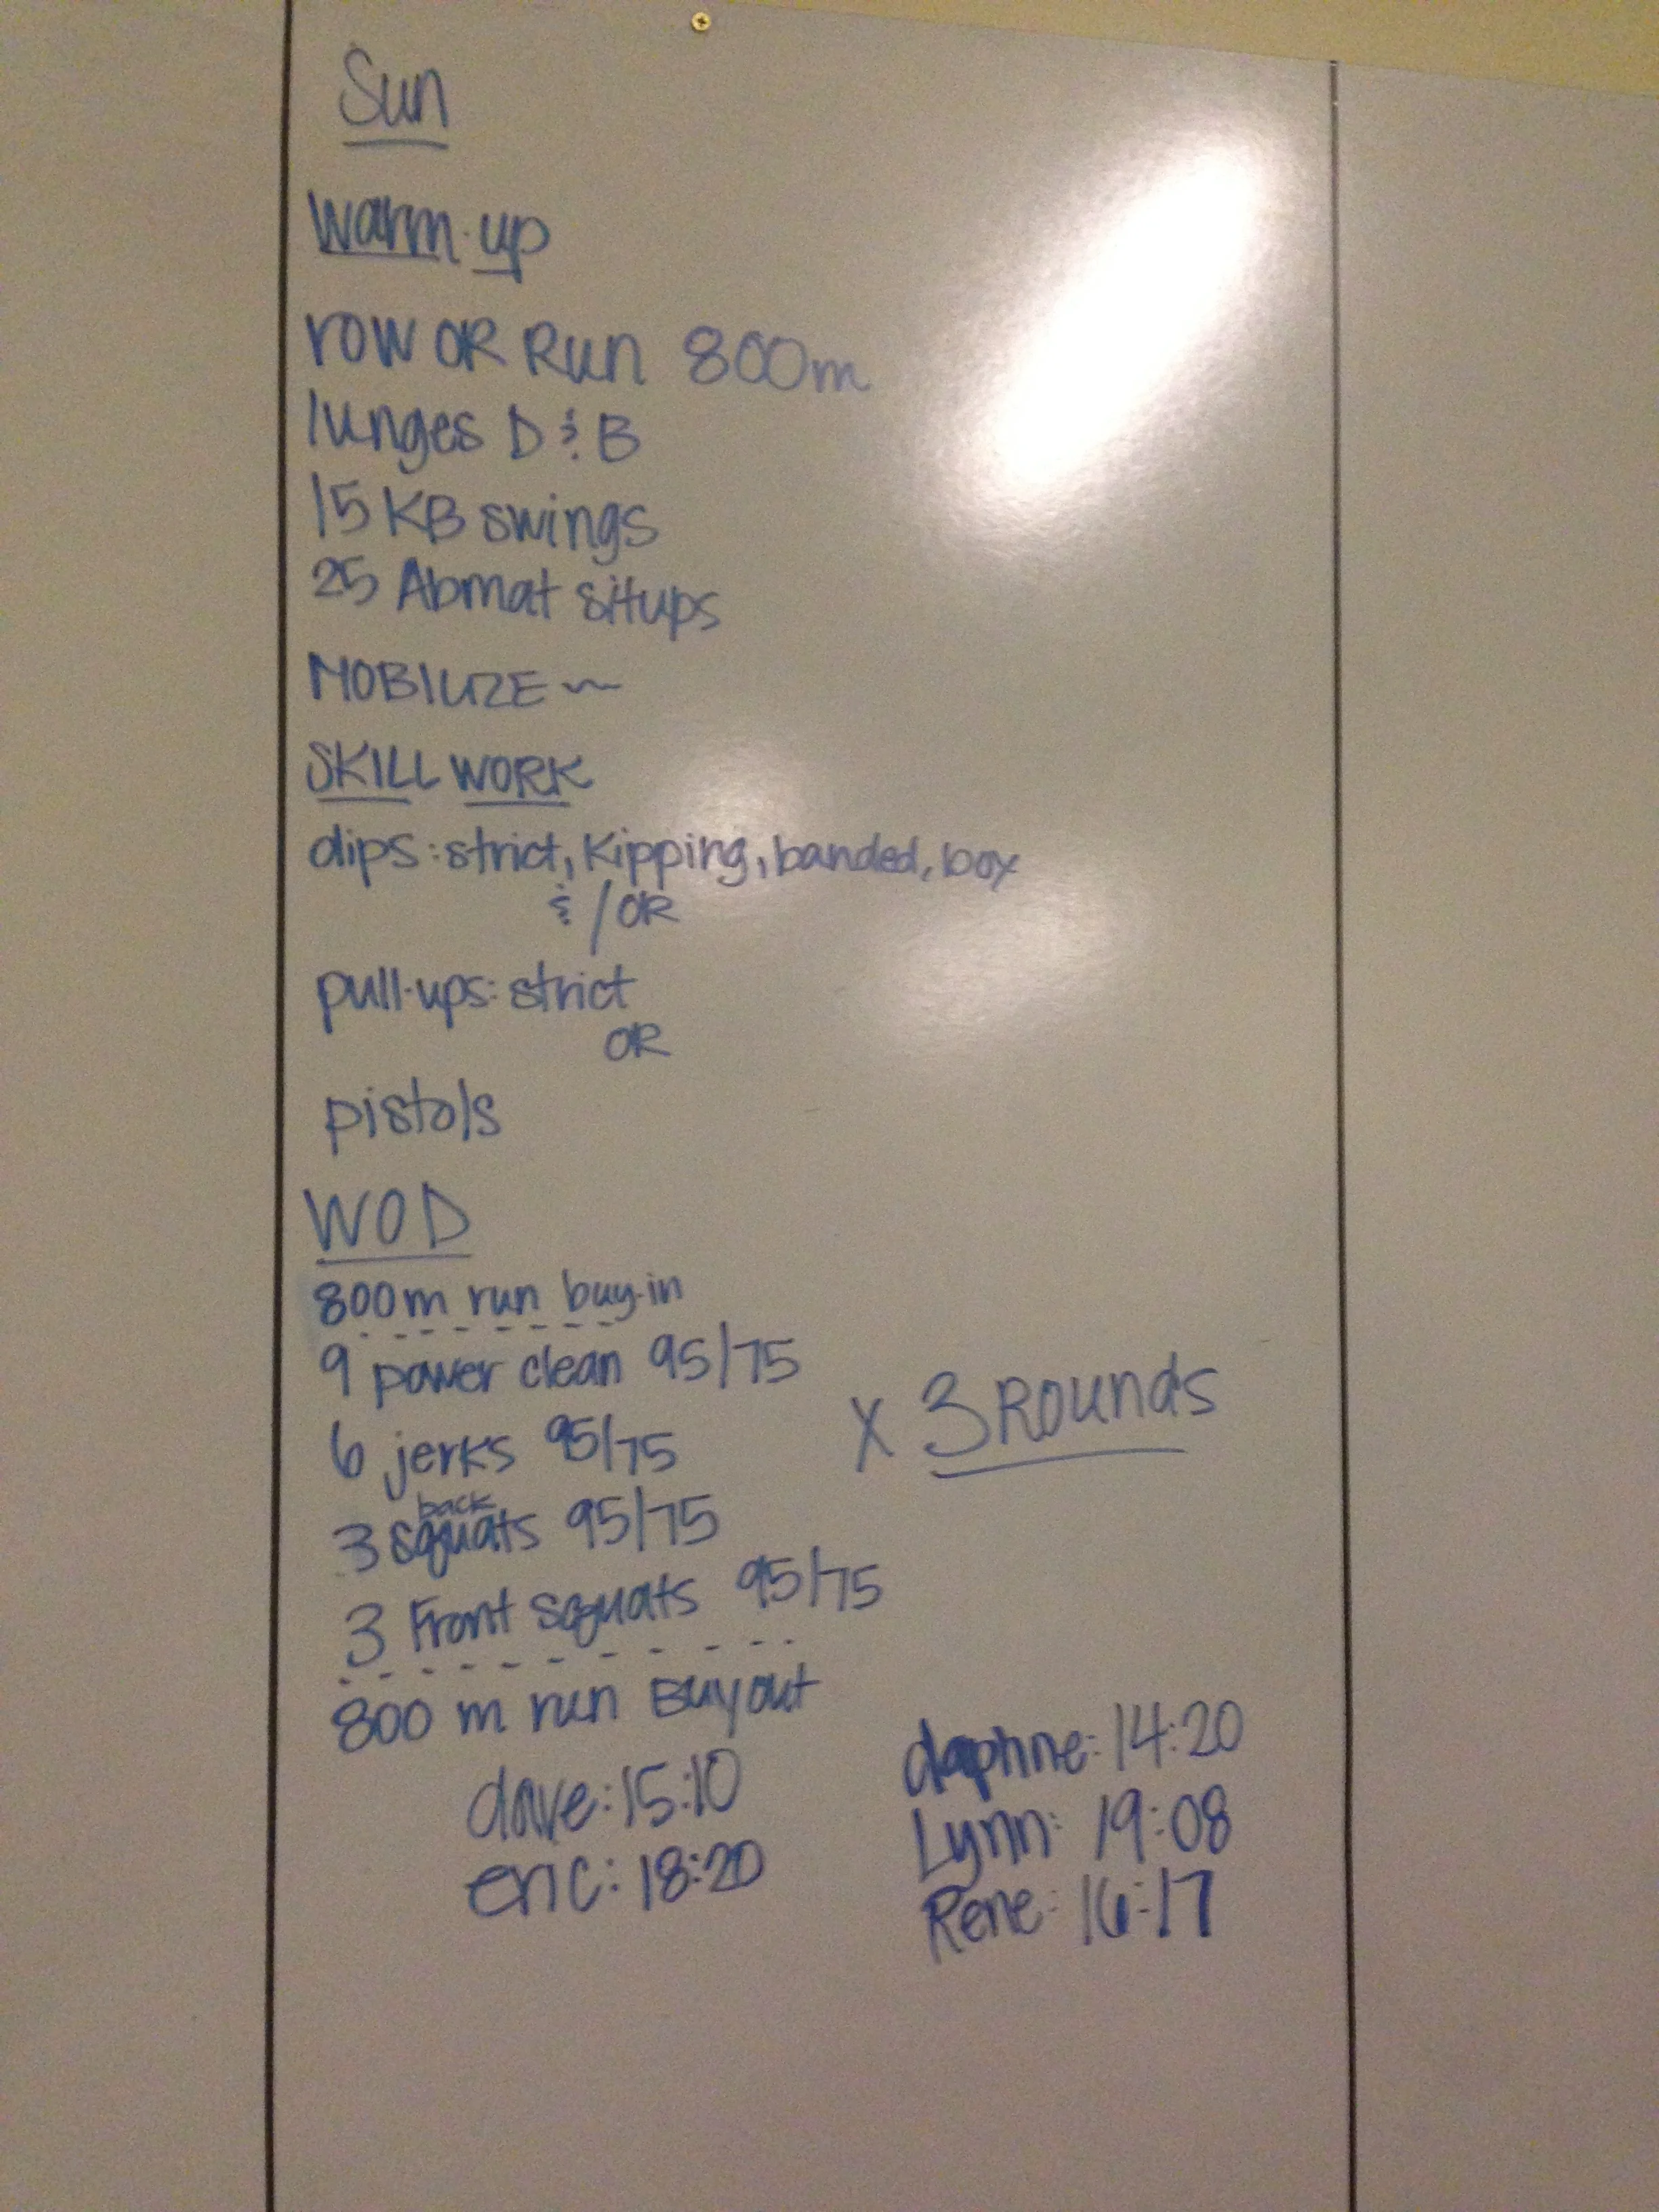 Sun
Warm-up
row OR Run 800m
lunges D & B
15 KB swings
25 Abmat situps
MOBILIZE ~
SKILL WORK
dips: strict, Kipping, banded, box
& / OR
pull-ups: strict
OR
pistols
WOD
800m run buy-in
9 power clean 95/75
6 jerks 95/75
x 3 Rounds
3 back squats 95/75
3 Front squats 95/75
800 m run Buy out
dave: 15:10
eric: 18:20
daphne: 14:20
Lynn: 19:08
Rene: 16:17